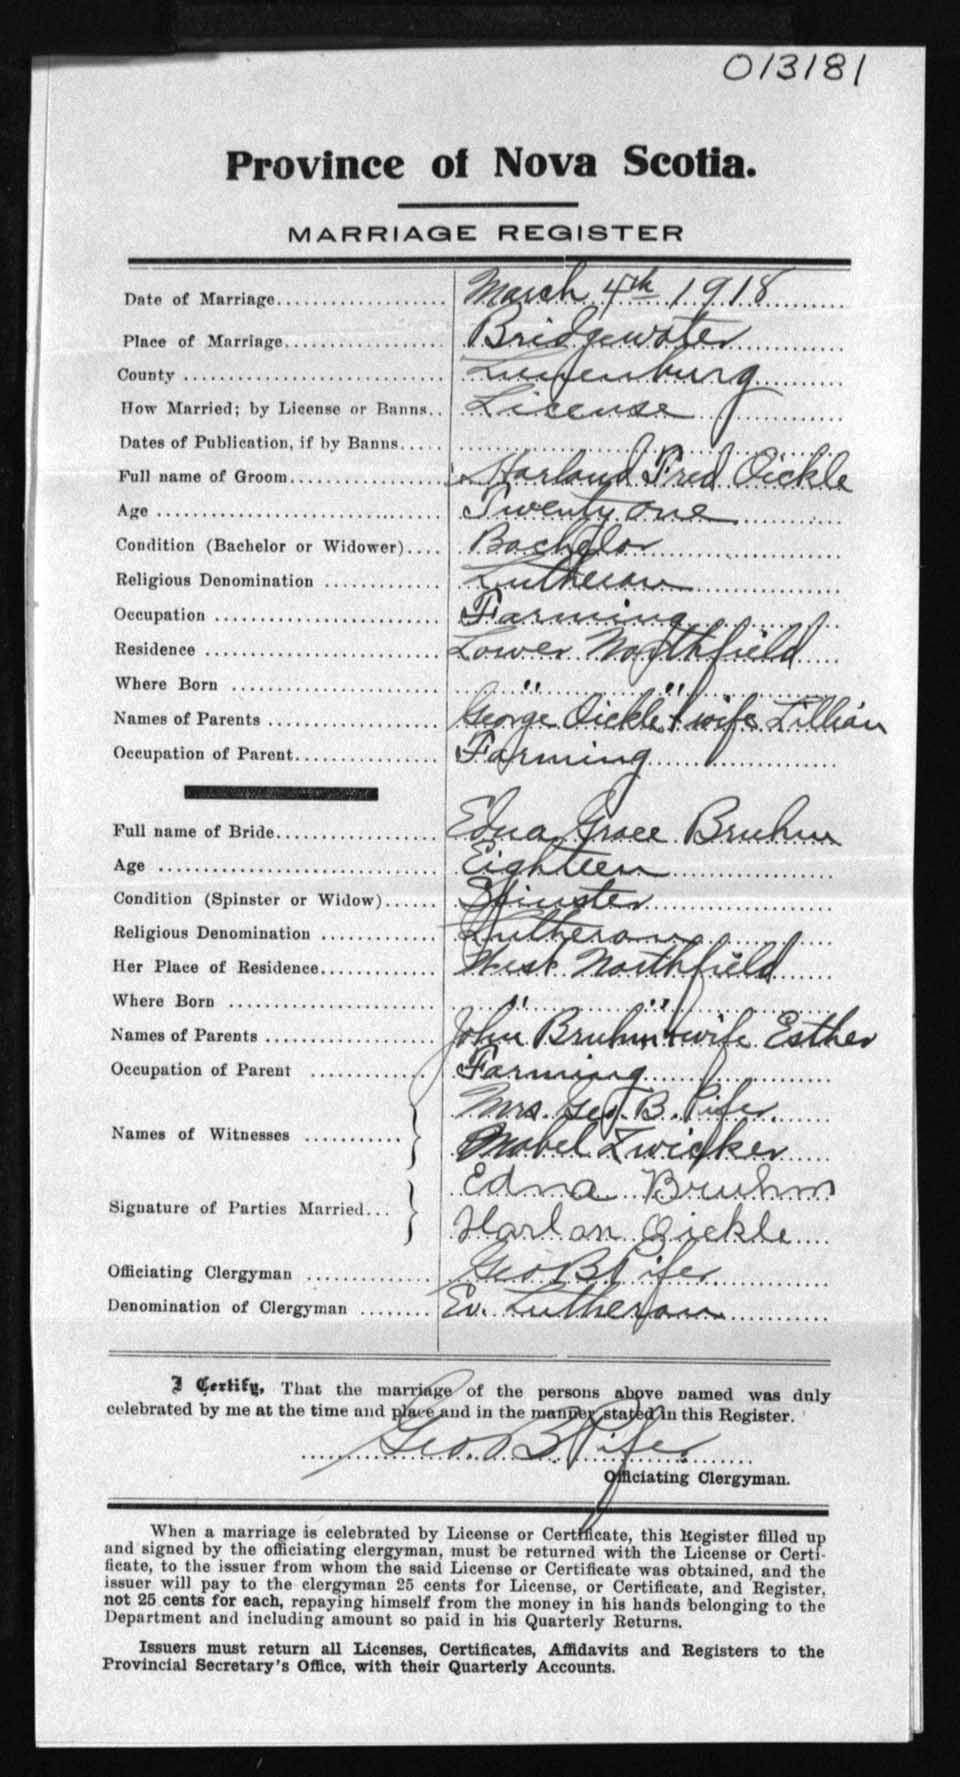 013181
Province of Nova Scotia.
MARRIAGE REGISTER
Date of Marriage.................... March 4th 1918
Place of Marriage................... Bridgewater
County ............................. Lunenburg
How Married; by License or Banns.. License
Dates of Publication, if by Banns.....
Full name of Groom.................. Harland Fred Oickle
Age ................................ Twenty one
Condition (Bachelor or Widower).... Bachelor
Religious Denomination ............. Lutheran
Occupation ......................... Farming
Residence .......................... Lower Northfield
Where Born ........................ " "
Names of Parents ................... George Oickle + wife Lillian
Occupation of Parent................. Farming
Full name of Bride................... Edna Grace Bruhm
Age ................................ Eighteen
Condition (Spinster or Widow)...... Spinster
Religious Denomination ............. Lutheran
Her Place of Residence.............. West Northfield
Where Born ........................ " "
Names of Parents ................... John Bruhm + wife Esther
Occupation of Parent ............. Farming
Mrs. Geo. B. Pifer.
Names of Witnesses ...........
Mabel Zwicker
Edna Bruhm
Signature of Parties Married...
Harlan Oickle
Officiating Clergyman .............. Geo B Pifer
Denomination of Clergyman ........ Ev. Lutheran
I Certify, That the marriage of the persons above named was duly
celebrated by me at the time and place and in the manner stated in this Register.
Geo. B. Pifer
Officiating Clergyman.
When a marriage is celebrated by License or Certificate, this Register filled up
and signed by the officiating clergyman, must be returned with the License or Certi-
ficate, to the issuer from whom the said License or Certificate was obtained, and the
issuer will pay to the clergyman 25 cents for License, or Certificate, and Register,
not 25 cents for each, repaying himself from the money in his hands belonging to the
Department and including amount so paid in his Quarterly Returns.
Issuers must return all Licenses, Certificates, Affidavits and Registers to the
Provincial Secretary's Office, with their Quarterly Accounts.